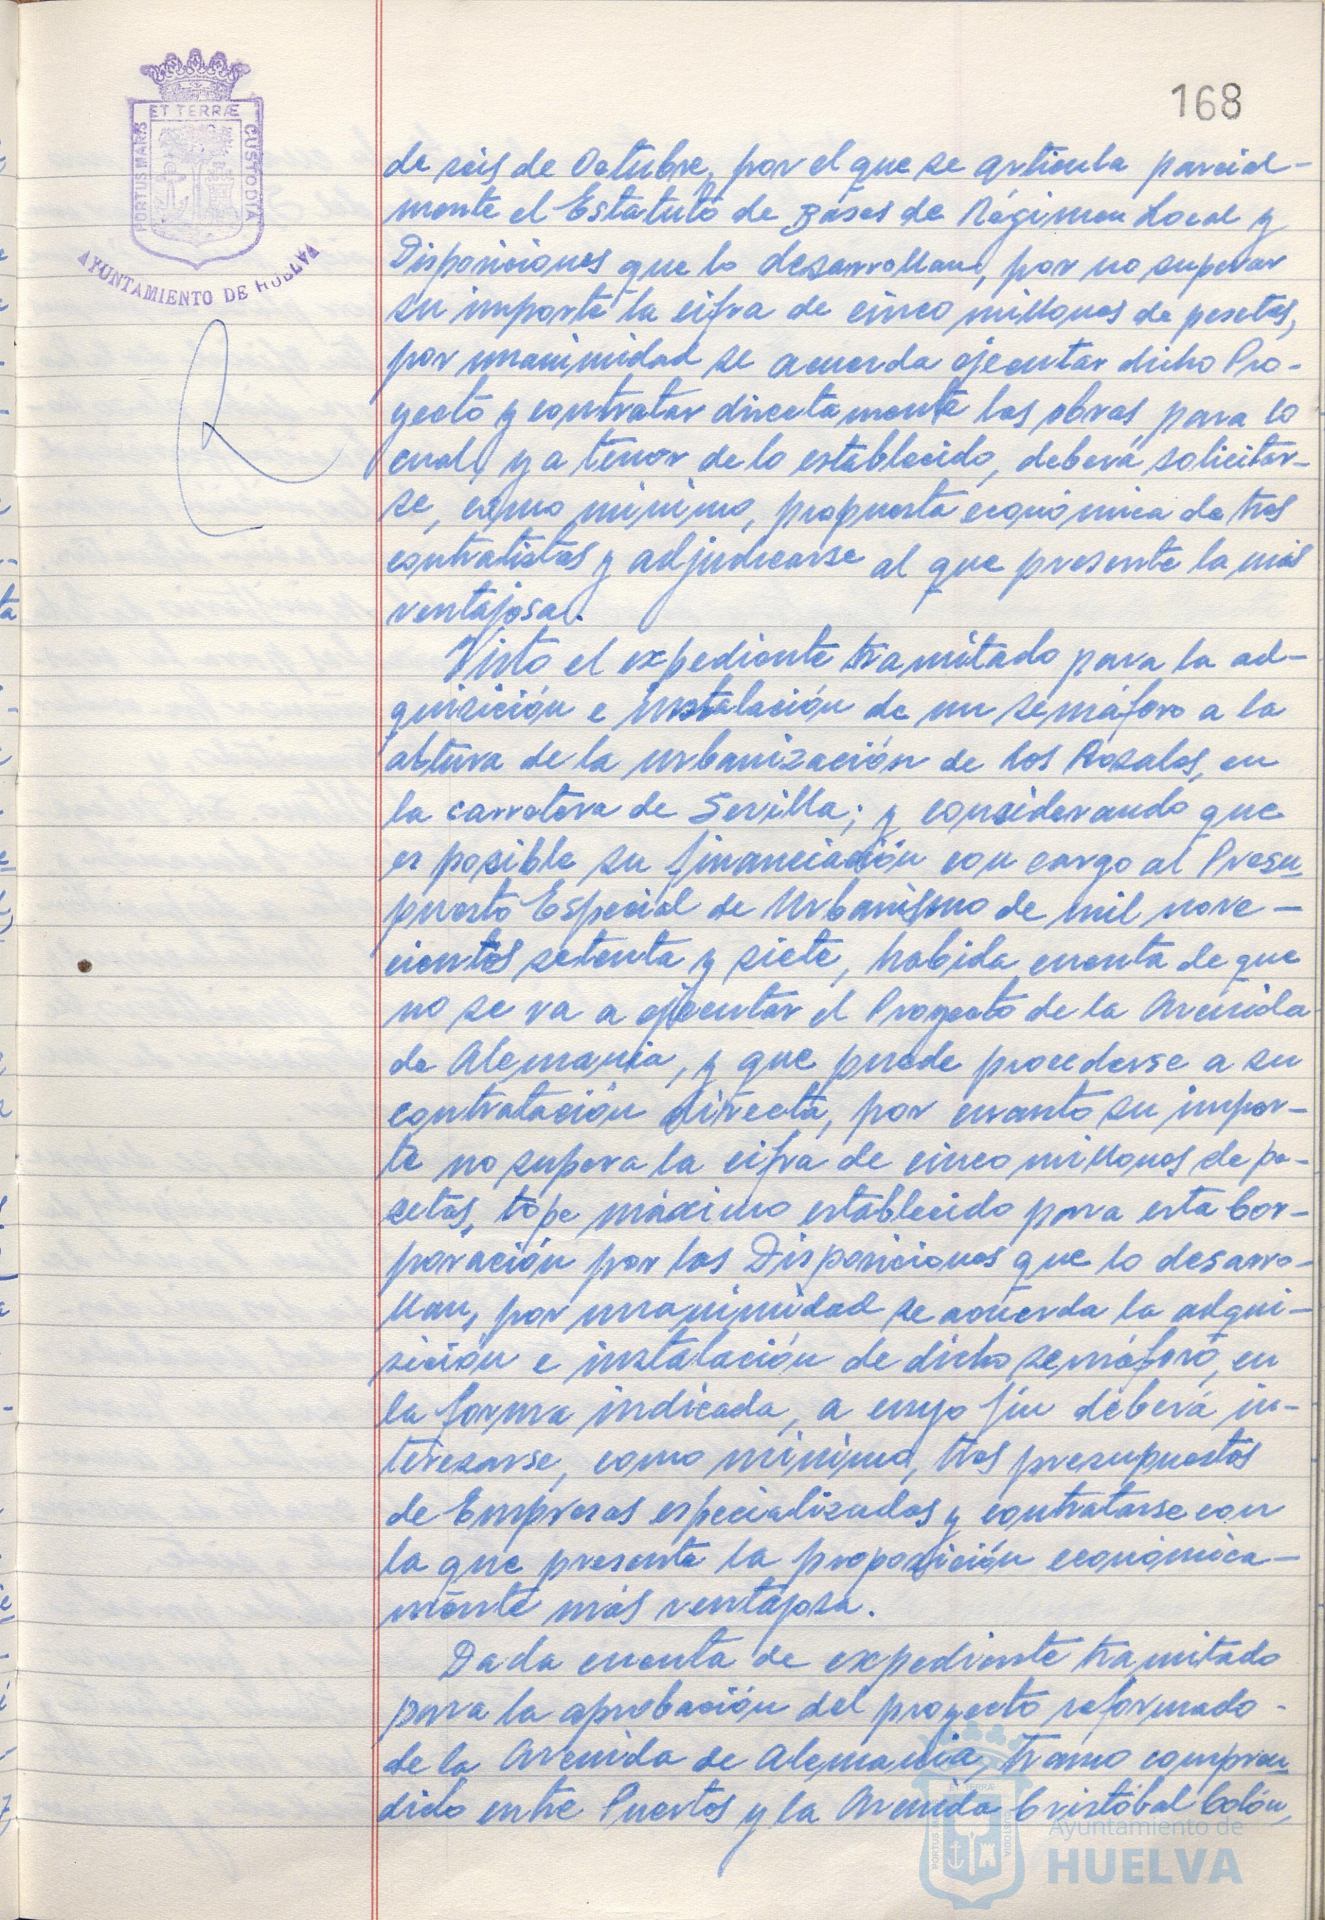 168
ET TERRÆ
PORTUS MARIS
CUSTODIA
AYUNTAMIENTO DE HUELVA
de seis de Octubre, por el que se articula parcial-
mente el Estatuto de Bases de Régimen Local y
Disposiciones que lo desarrollan, por no superar
su importe la cifra de cinco millones de pesetas,
por unanimidad se acuerda ejecutar dicho Pro-
yecto y contratar directamente las obras, para lo
cual, y a tenor de lo establecido, deberá solicitar-
se, como mínimo, propuesta económica de tres
contratistas y adjudicarse al que presente la más
ventajosa.
Visto el expediente tramitado para la ad-
quisición e instalación de un semáforo a la
altura de la urbanización de los Rosales, en
la carretera de Sevilla; y considerando que
es posible su financiación con cargo al Presu
puesto Especial de Urbanismo de mil nove-
cientos setenta y siete, habida cuenta de que
no se va a ejecutar el Proyecto de la Avenida
de Alemania, y que puede procederse a su
contratación directa, por cuanto su impor-
te no supera la cifra de cinco millones de pe-
setas, tope máximo establecido para esta Cor-
poración por las Disposiciones que lo desarro-
llan, por unanimidad se acuerda la adqui-
sición e instalación de dicho semáforo, en
la forma indicada, a cuyo fin deberá in-
teresarse, como mínimo, tres presupuestos
de Empresas especializadas y contratarse con
la que presente la proposición económica-
mente más ventajosa.
Dada cuenta de expediente tramitado
para la aprobación del proyecto reformado-
de la Avenida de Alemania, tramo compren
dido entre Puertos y la Avenida Cristóbal Colón,
Ayuntamiento de
HUELVA